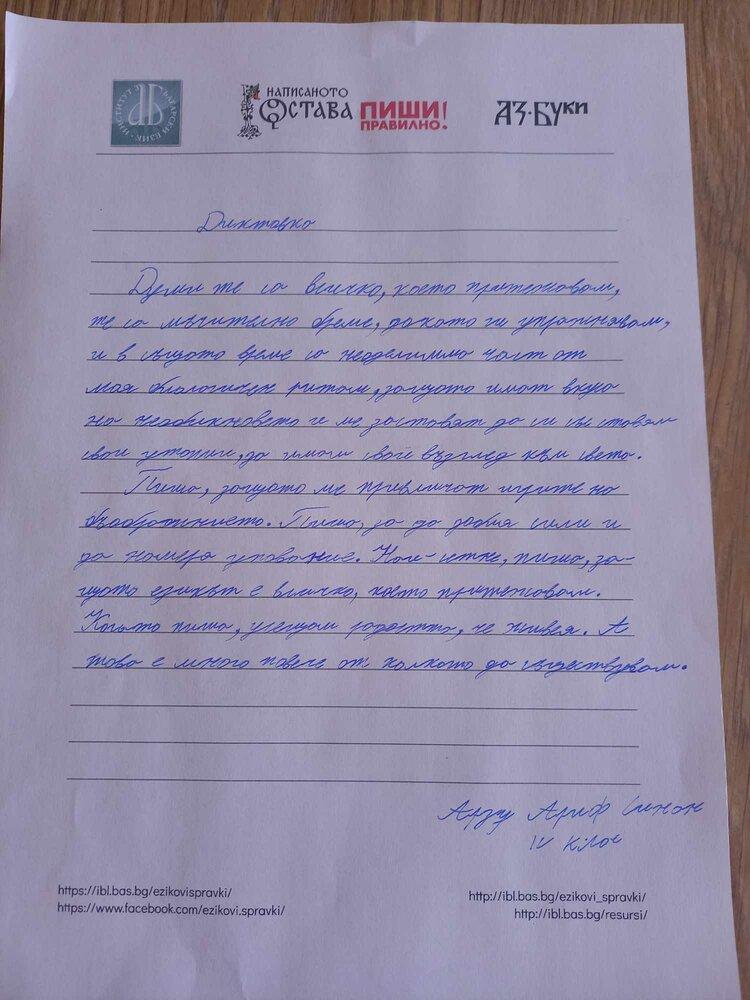 ИНСТИТУТ ЗА БЪЛГАРСКИ ЕЗИК
НАПИСАНОТО
ОСТАВА
ПИШИ
ПРАВИЛНО!
АЗ·БУКИ
Диктовка
Думи те са всичко, което притежавам,
те са мъчително бреме, докато ги упражнявам,
и в същото време са неделимма част от
моя биологичен ритъм, защото имат вкуса
на необикновето и ме заставят да си съставям
свои утопии, да имам свой възглед към света.
Пиша, защото ме привличат игрите на
въображението. Пиша, за да добия сили и
да намеря упование. Най-сетне, пиша, за-
щото езикът е всичко, което притежавам.
Когато пиша, усещам радостта, че живея. А
това е много повече от колкото да съществувам.
Арзу Ариф Синан
IV клас
https://ibl.bas.bg/ezikovispravki/
https://www.facebook.com/ezikovi.spravki/
http://ibl.bas.bg/ezikovi_spravki/
http://ibl.bas.bg/resursi/